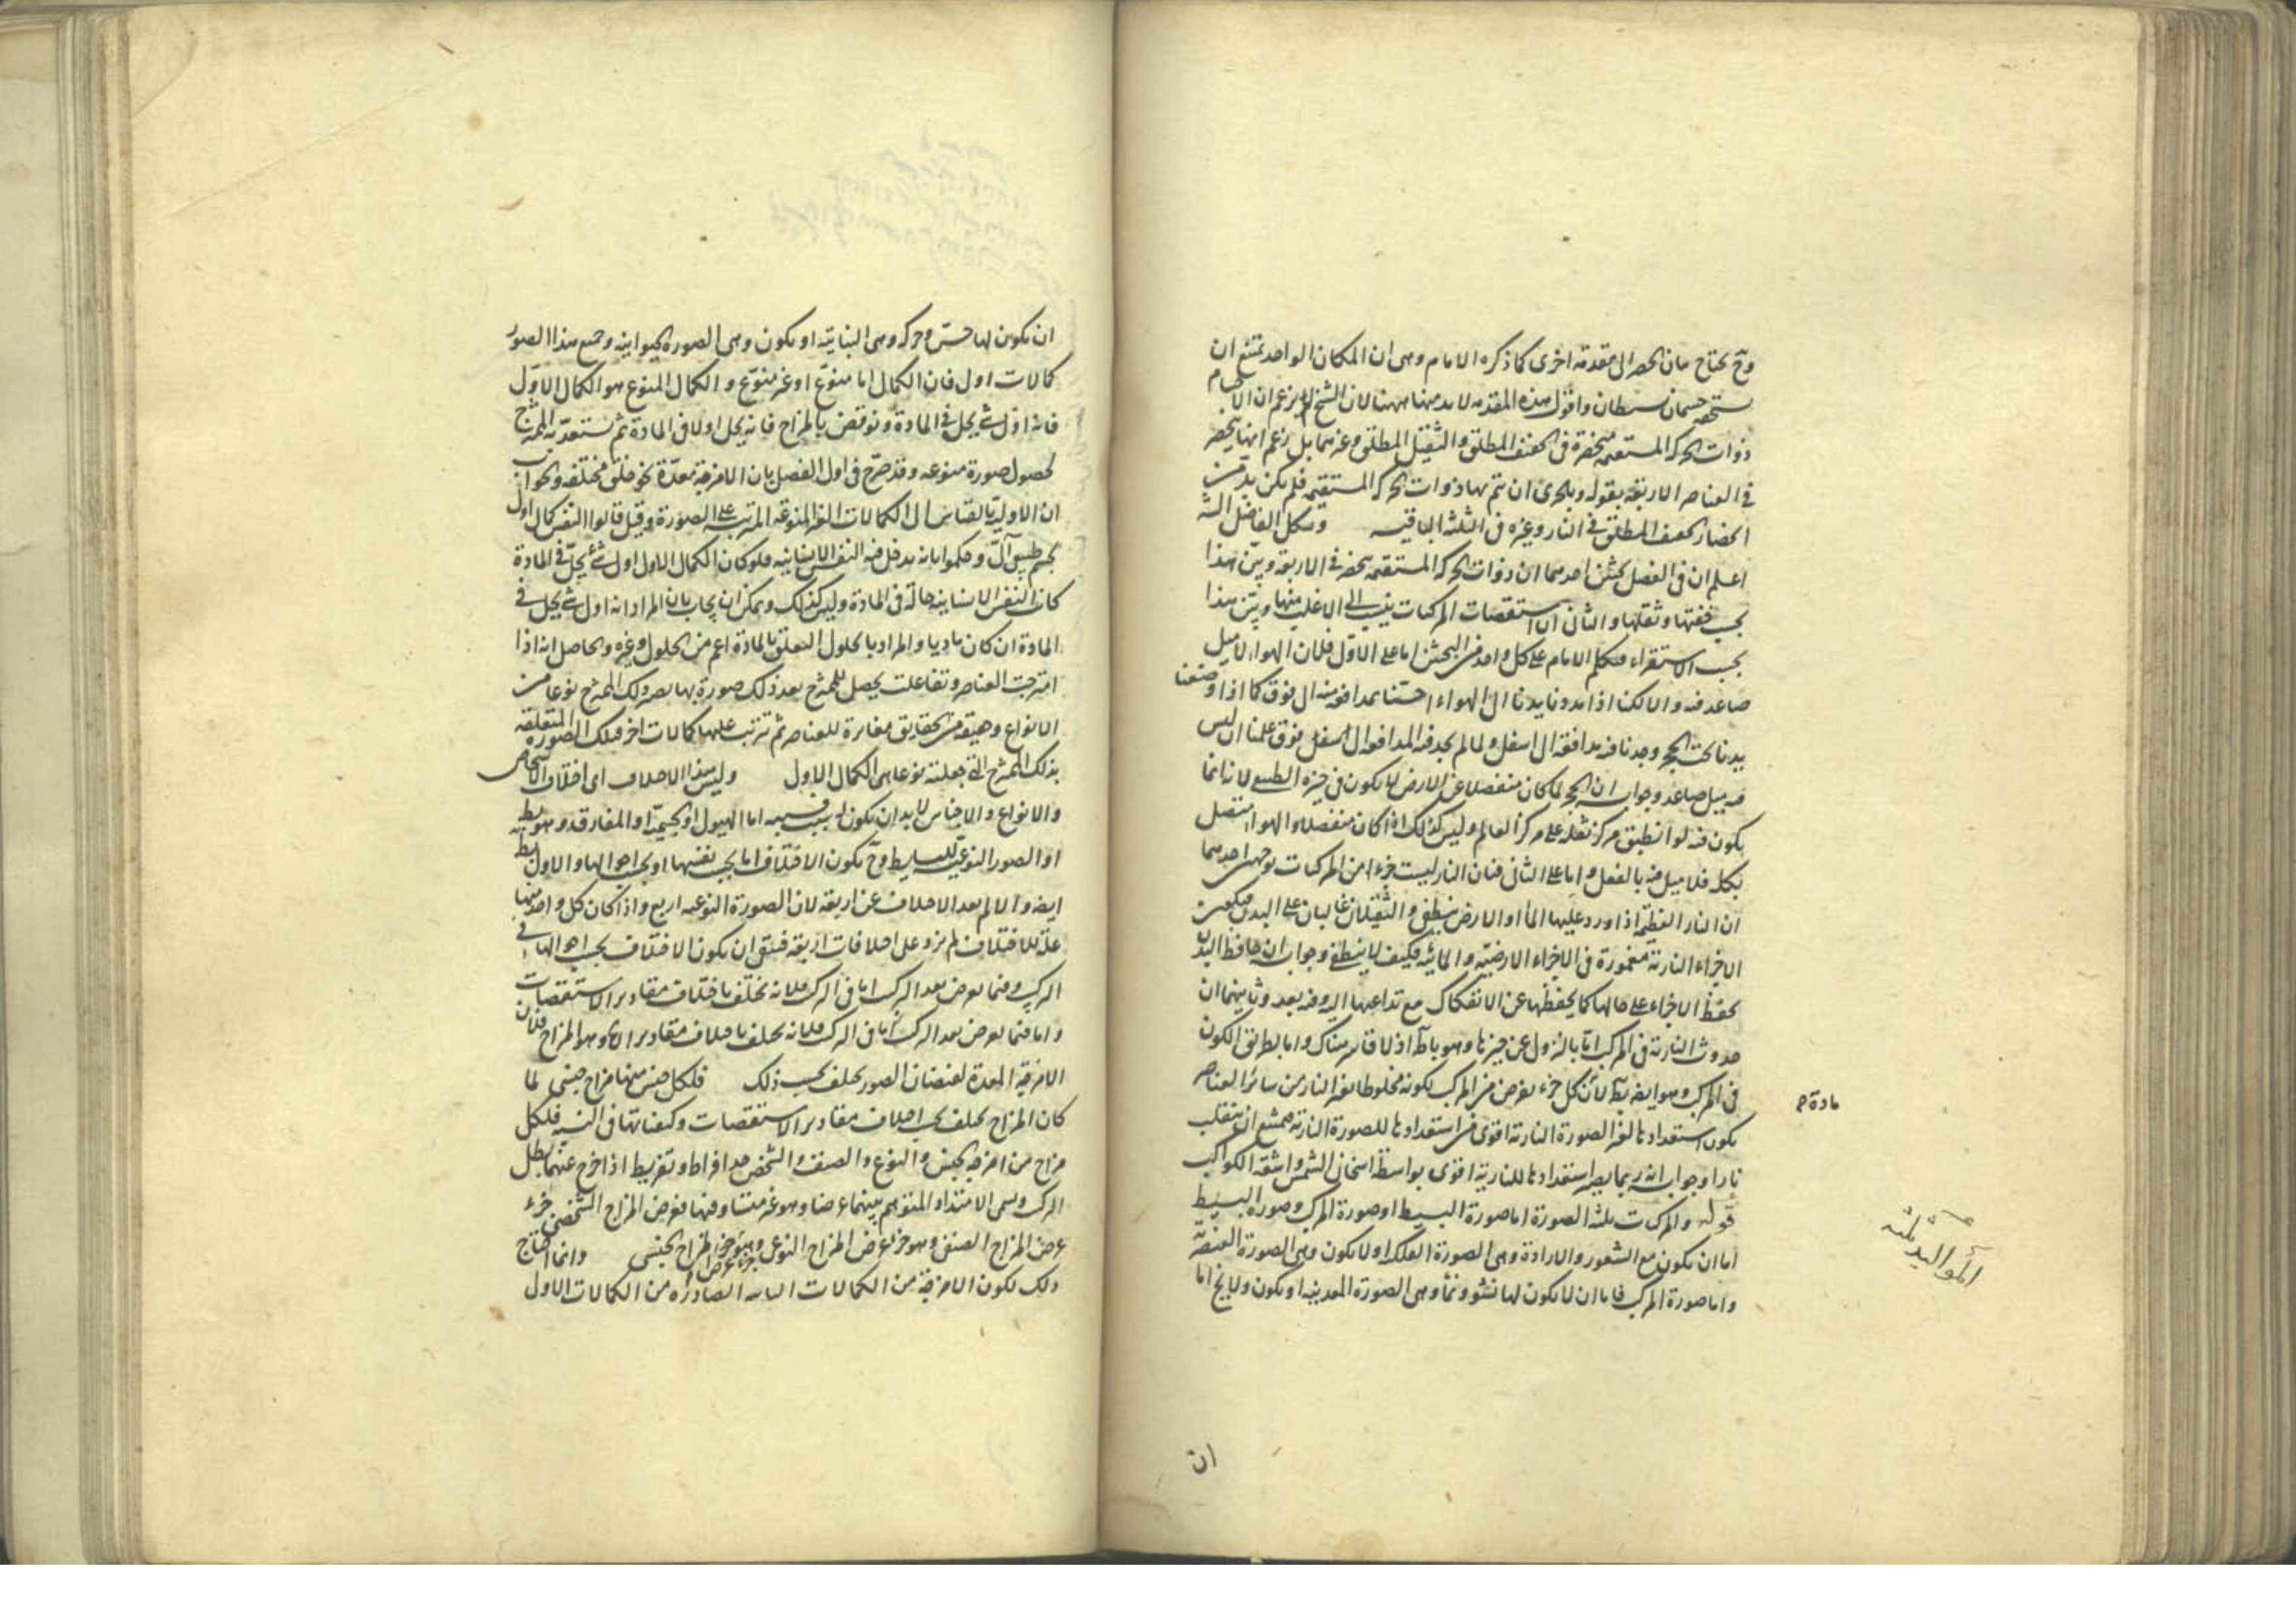 وح يحتاج بيان الحصر الى مقدمة اخرى كما ذكره الامام وهى ان المكان الواحد يمتنع ان
يستحقه جسمان بسيطان واقول هذه المقدمة لا بد منها ههنا لان الشيخ زعم ان الاجسام
ذوات الحركة المستقيمة منحصرة فى الخفيف المطلق والثقيل المطلق وغيرهما بل زعم انها ينحصر
فى العناصر الاربعة بقوله وبالحرى ان يتم بها ذوات الحركة المستقيمة فلم يكن بد من
انحصار الخفيف المطلق فى النار وغيره فى الثلثة الباقية
اعلم ان فى الفصل بحثين احدهما ان ذوات الحركة المستقيمة ينحصر فى الاربعة وبين هذا
بحسب خفتها وثقلها والثانى ان استقصات المركبات ينسب الى الاغلب منها وبين هذا
بحسب الاستقراء فتكلم الامام على كل واحد من البحثين اما على الاول فلان الهواء لا ميل
صاعد فيه والا لكنا اذا مددنا يدنا الى الهواء احسسنا بمدافعة منه الى فوق كما اذا وضعنا
يدنا تحت الحجر وجدنا فيه مدافعة الى اسفل ولما لم يجد فيه المدافعة الى فوق علمنا ان ليس
فيه ميل صاعد وجوابه ان الحجر لما كان منفصلا عن الارض لا يكون فى حيزه الطبيعى لانه انما
يكون فيه لو انطبق مركز ثقله على مركز العالم وليس كذلك اذا كان منفصلا والهواء متصل
بكله فلا ميل فيه بالفعل واما على الثانى فان النار ليست جزءا من المركبات لوجهين احدهما
ان النار العظيمة اذا ورد عليها الماء او الارض ينطفى والثقيلان غالبان على البدن فيكون
الاجزاء النارية مغمورة فى الاجزاء الارضية والمائية فكيف لا ينطفى وجوابه ان حافظ البدن
يحفظ الاجزاء على حالها كما يحفظها عن الانفكاك مع تداعيها اليه وفيه بعد وثانيهما ان
حدوث النارية فى المركب اما بالنزول عن حيزها وهو باطل اذ لا قاسر هناك واما بطريق الكون
فى المركب وهو ايضا بط لان كل جزء يعرض من المركب لكونه مخلوطا بغير النار من سائر العناصر
يكون استعداد مادة لغير الصورة النارية اقوى من استعدادها للصورة النارية فيمتنع ان ينقلب
نارا وجوابه انه ربما يصير استعدادها للنارية اقوى بواسطة اسخان الشمس واشعة الكواكب
قوله والمركبات ثلثة الصورة اما صورة البسيط او صورة المركب وصورة البسيط
اما ان يكون مع الشعور والارادة وهى الصورة الفلكية او لا يكون وهى الصورة العنصرية
واما صورة المركب فاما ان لا يكون لها نشو ونماء وهى الصورة المعدنية او يكون ولا يخ اما
مادة
المواليد ثلثة
ان
ان يكون لها حس وحركة وهى النباتية او يكون وهى الصورة الحيوانية وجميع هذا الصور
كمالات اول فان الكمال اما منوع او غير منوع والكمال المنوع هو الكمال الاول
فانه اول شئ يحل فى المادة ونوقض بالمزاج فانه يحل اولا فى المادة ثم يستعد به الممتزج
لحصول صورة منوعه وقد صرح فى اول الفصل بان الامزجة معدة نحو خلق مختلفة والجواب
ان الاولية بالقياس الى الكمالات الغير المنوعة المترتبة على الصورة وقيل قالوا النفس كمال اول
لجسم طبيعى آلى وحكموا بانه يدخل فيه النفس الانسانية فلو كان الكمال الاول اول شئ يحل فى المادة
كان النفس الانسانية حالة فى المادة وليس كذلك ويمكن ان يجاب بان المراد انه اول شئ يحل فى
المادة ان كان ماديا والمراد بالحلول التعلق بالمادة اعم من الحلول وغيره والحاصل انه اذا
امتزجت العناصر وتفاعلت يحصل للممتزج بعد ذلك صورة بها يصير ذلك الممتزج نوعا من
الانواع وحقيقة من الحقايق مغايرة للعناصر ثم تترتب عليها كمالات اخر فتلك الصورة المتعلقة
بذلك الممتزج التى جعلته نوعا هى الكمال الاول وليس هذا الاختلاف اى اختلاف الاشخاص
والانواع والاجناس لا بد ان يكون له سبب اما الهيولى او الجسمية او المفارق وهو بط
او الصور النوعية للبسايط وح يكون الاختلاف اما بحسب نفسها او بحسب احوالها والاول بط
ايضا والا لم يعد الاختلاف عن اربعة لان الصورة النوعية اربع واذا كان كل واحد منها
علة للاختلاف لم يزد على اختلافات اربعة فبقى ان يكون الاختلاف بحسب احوالها فى
التركيب وفيما يعرض بعد التركيب اما فى التركيب فلانه يختلف باختلاف مقادير الاستقصات
واما فيما يعرض بعد التركيب اما فى التركيب فلانه يختلف باختلاف مقادير وهو المزاج فلان
الامزجة المعدة لفيضان الصور يختلف بحسب ذلك فلكل جنس منها مزاج جنسى لما
كان المزاج يختلف بحسب اختلاف مقادير الاستقصات وكيفياتها فى النسبة فلكل
مزاج من امزجة الجنس والنوع والصنف والشخص حد افراط وتفريط اذا خرج عنهما بطل
التركيب ويسمى الامتداد المتوهم بينهما عرضا وهو غير متناه فيهما فعرض المزاج الشخصى جزء
عرض المزاج الصنفى وهو جزء عرض المزاج النوعى وهو جزء عرض المزاج الجنسى وانما احتاج
ذلك لكون الامزجة من الكمالات الثانية الصادرة من الكمالات الاول